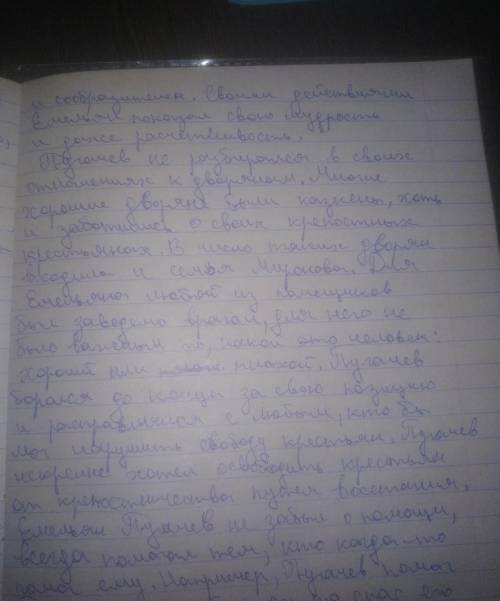 и сообразителен. Своими действиями
Емельян показал свою мудрость
и даже расчетливость.
Пугачев не разбирался в своих
отношениях к дворянам. Многие
хорошие дворяне были казнены, хоть
и заботились о своих крепостных
крестьянах. В число таких дворян
входила и семья Миронова. Для
Емельяна любой из помещиков
был заведомо врагом, для него не
было важным то, какой это человек:
хороший или плохой. Пугачев
боролся до конца за свою позицию
и расправлялся с любым, кто бы
мог нарушить свободу крестьян. Пугачев
искренне хотел освободить крестьян
от крепостничества путем восстания.
Емельян Пугачев не забыл о помощи,
всегда помогал тем, кто когда-то
помог ему. Например, Пугачев помог
спас его